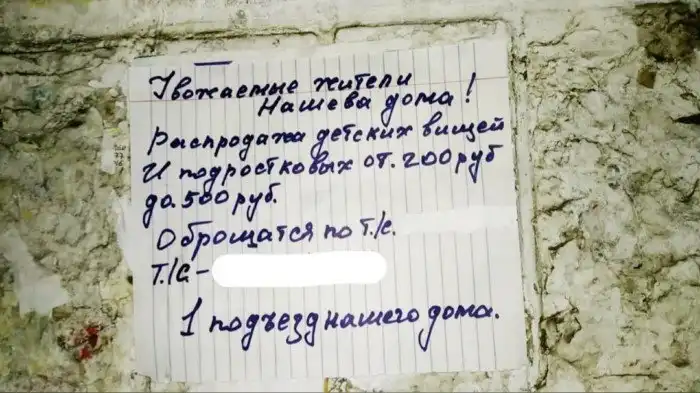 Уважаемые жители
Нашева дома!
Распродажа детских вищей
И подростковых от. 200 руб
до. 500 руб.
Оброщатся по Т./с.
Т./с –
1 подъезд нашего дома.